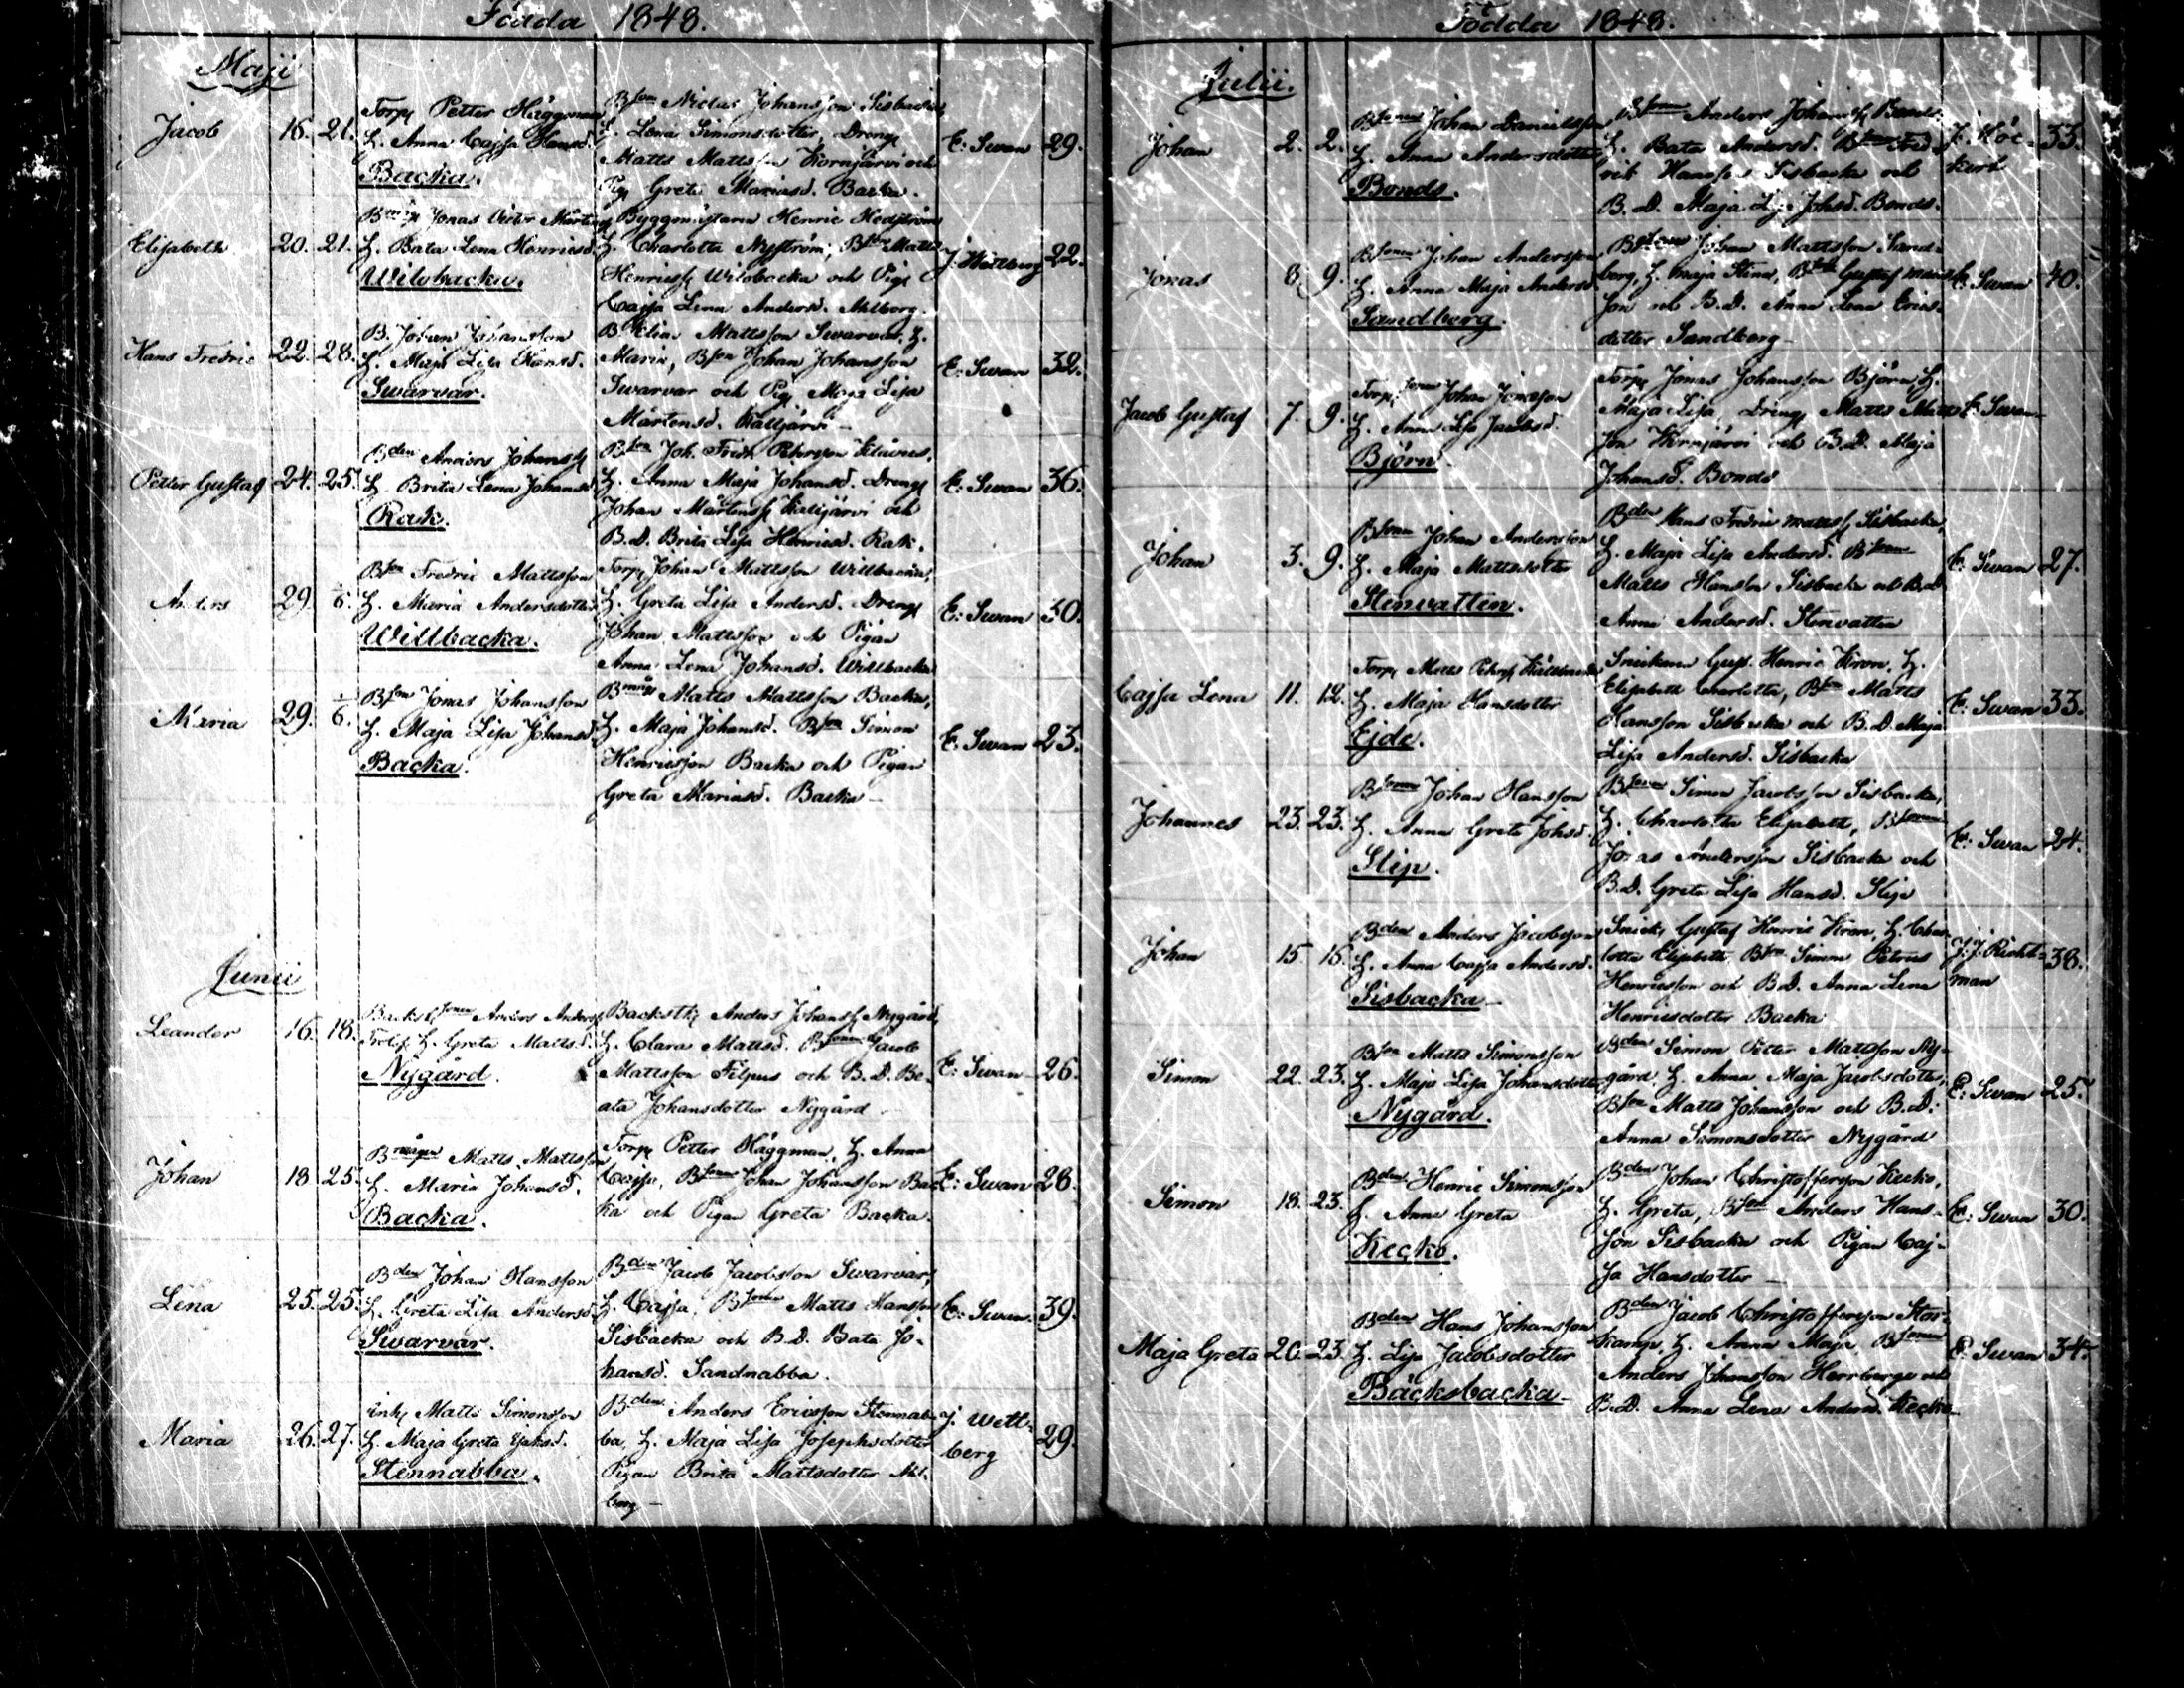 Födda 1848.
Maji
Jacob 16. 21.
Torp. Petter Häggman
H. Anna Cajsa Hansd.
Backa.
Bson Niclas Johansson Sisbacka,
H. Lena Simonsdotter, Dreng
Matts Mattsson och
Pig. Greta Mariasd. Backa.
E: Swan 29.
Elisabeth 20. 21.
Jonas Victor
H. Bata Lena Henricsd.
Wilobacka.
Byggmästaren Henric Hedström
H. Charlotta Nyström, Bson Matts
Henricss. Wilobacka och Pig.
Cajsa Lena Andersd. Ahlborg.
J. Wettberg 22.
Hans Fredric 22. 28.
B. Johan Johansson
H. Maja Lisa Hansd.
Swarvar.
B. Elias Mattsson Swarvar, H.
Maria, Bson Johan Johansson
Swarvar och Pig. Maja Lisa
Mårtensd. Kaitjärvi
E: Swan 32.
Petter Gustaf 24. 25.
Bden Anders Johanss.
H. Brita Lena Johansd.
Rak.
Bson Joh. Fredr. Petersson
H. Anna Maja Johansd. Dreng
Johan Mårtenss. Kaitjärvi och
B.d. Brita Lisa Henricsd. Rak.
E: Swan 36.
Anders 29. 6.
Bson Fredric Mattsson
H. Maria Andersdotter
Willbacka.
Torp. Johan Mattsson Willbacka,
H. Greta Lisa Andersd. Dreng
Johan Mattsson och Pigan
Anna Lena Johansd. Willbacka
E: Swan 30.
Maria 29. 6.
Bson Jonas Johansson
H. Maja Lisa Johansd.
Backa.
Matts Mattsson Backa,
H. Maja Johansd. Bson Simon
Henricsson Backa och Pigan
Greta Mariasd. Backa
E. Swan 23.
Junii
Leander 16. 18.
Anders Anderss.
H. Greta Mattsd.
Nygård.
Anders Johanss. Nygård,
H. Clara Mattsd. Bsonen Jacob
Mattsson Filpus och B.D. Be-
ata Johansdotter Nygård
E: Swan 26.
Johan 18 25.
Bmågen Matts Mattsson
H. Maria Johansd.
Backa.
Torp. Petter Häggman, H. Anna
Cajsa, Bsonen Johan Johansson Bac-
ka och Pigan Greta Backa.
E: Swan 28.
Lena 25. 25.
Bden Johan Hansson
H. Greta Lisa Andersd.
Swarvar.
Bden Jacob Jacobsson Swarvar,
H. Cajsa, Bsonen Matts Hansson
Sisbacka och B.D. Bata Jo-
hansd. Sandnabba.
E: Swan. 39.
Maria 26. 27.
Inh. Matts Simonsson
H. Maja Greta
Stennabba.
Bden Anders Ericsson Stennab-
ba, H. Maja Lisa Josephsdotter
Pigan Brita Mattsdotter Ahl-
borg
J. Wett-
berg 29.
Födda 1848.
Julii.
Johan 2. 2.
Bsonen Johan Danielsson
H. Anna Andersdotter
Bonds.
Bsonen Anders Johanss. Bonds
H. Bata Andersd.
Hansson Sisbacka och
B.D. Maja Johsd. Bonds.
33.
Jonas 8. 9.
Bsonen Johan Andersson
H. Anna Maja Andersd.
Sandberg.
Bsonen Johan Mattsson Sand-
berg, H. Maja Stina, Gustaf
son och B.D. Anna Lena Erics-
dotter Sandberg
E: Swan 40.
Jacob Gustaf 7. 9.
Torp. Johan
H. Anna Lisa Jacobsd.
Björn.
Torp. Jonas Johansson Björn, H.
Maja Lisa, Dreng Matts Matts-
son och B.D. Maja
Johansd. Bonds
E: Swan
Johan 3. 9.
Bsonen Johan Andersson
H. Maja Mattsdotter
Stenvatten.
Bden Hans Fredric Mattss. Sisbacka,
H. Maja Lisa Andersd. Bsonen
Matts Hansson Sisbacka och B.d
Anna Andersd. Stenvatten
E: Swan 27.
Cajsa Lena 11. 12.
Torp. Matts Peterss.
H. Maja Hansdotter
Ejde.
Snickaren Gust. Henric Kron, H.
Elisabeth Charlotta, Bson Matts
Hansson Sisbacka och B.D. Maja
Lisa Andersd. Sisbacka
E: Swan 33.
Johannes 23. 23.
Bsonen Johan Hansson
H. Anna Greta Johsd.
Slip.
Bsonen Simon Jacobsson Sisbacka,
H. Charlotta Elisabeth, Bsonen
Jonas Andersson Sisbacka och
B.D. Greta Lisa Hansd. Slip
E: Swan 24.
Johan 15 16.
Bden Anders Jacobsson
H. Anna Cajsa Andersd.
Sisbacka
Snick. Gustaf Henric Kron, H. Char-
lotta Elisabeth Bson Simon Petrus
Henricsson och B.D. Anna Lena
Henricsdotter Backa
man 38.
Simon 22. 23.
Bson Matts Simonsson
H. Maja Lisa Johansdotter
Nygård.
Bden Simon Petter Mattsson Ny-
gård, H. Anna Maja Jacobsdotter,
Bson Matts Johansson och B.d.
Anna Simonsdotter Nygård
E: Swan 25.
Simon 18. 23.
Bden Henric Simonsson
H. Anna Greta
Kecko.
Bden Johan Christoffersson Kecko,
H. Greta, Bson Anders Hans-
son Sisbacka och Pigan Caj-
sa Hansdotter
E: Swan 30.
Maja Greta 20. 23.
Bden Hans Johansson
H. Lisa Jacobsdotter
Bäcksbacka
Bden Jacob Christoffersson Stor-
kamp, H. Anna Maja, Bsonen
Anders Johansson Herrberga och
B.D. Anna Lena Andersd. Kecko
E: Swan 34.